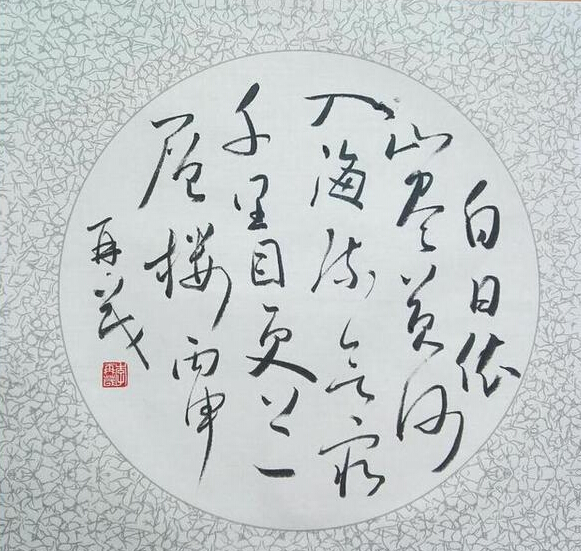 白日依
山尽黄河
入海流欲穷
千里目更上一
层楼 丙申
再义